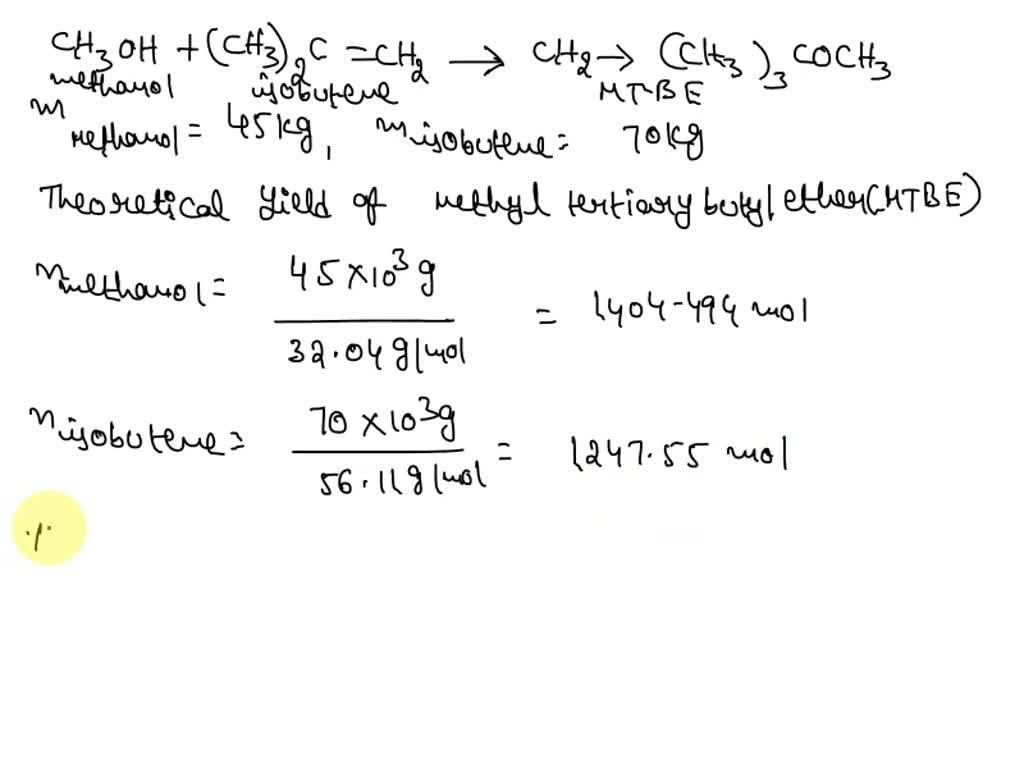 CH3OH + (CH3)2C = CH2 → CH2 → (CH3)3COCH3
methanol isobutene MTBE
m methanol = 45 kg, m isobutene = 70 kg
Theoretical Yield of methyl tertiary butyl ether (MTBE)
n methanol = 45 × 10³ g / 32.04 g/mol = 1404.494 mol
n isobutene = 70 × 10³ g / 56.11 g/mol = 1247.55 mol